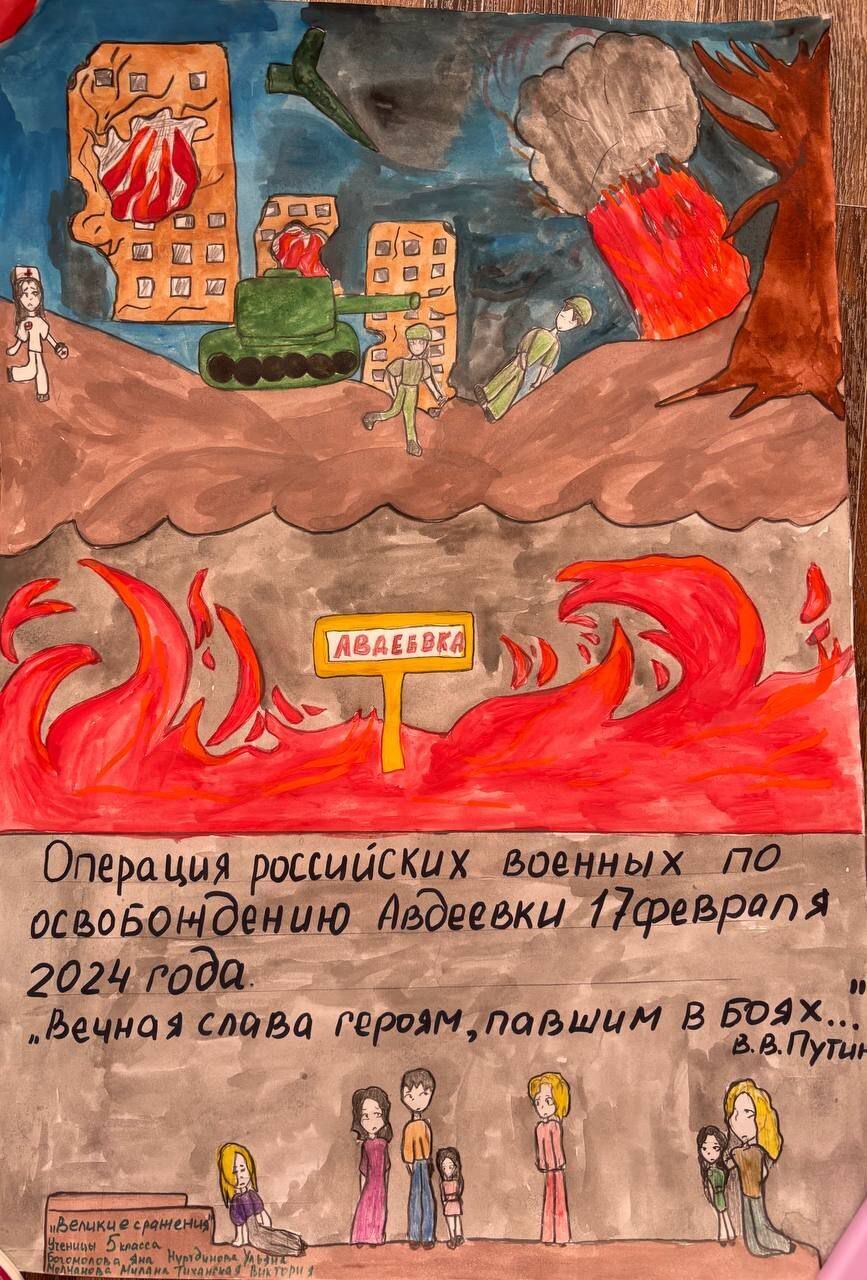 АВДЕЕВКА
Операция российских военных по
освобождению Авдеевки 17 февраля
2024 года.
„Вечная слава героям, павшим в боях..."
В.В.Путин
„Великие сражения"
Ученицы 5 класса
Богомолова Яна Нуртдинова Ульяна
Молчанова Милана Тиханская Виктория